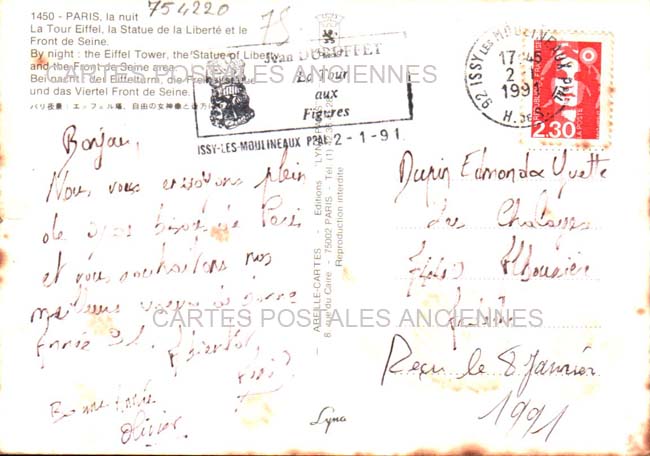 754220
75
1450 - PARIS, la nuit
La Tour Eiffel, la Statue de la Liberté et le
Front de Seine.
By night : the Eiffel Tower, the Statue of Liberty
and the Front de Seine area.
Bei nacht : der Eiffelturm, die Freiheitsstatue
und das Viertel Front de Seine.
パリ夜景：エッフェル塔、自由の女神像と
Jean DUBUFFET
La Tour
aux
Figures
ISSY-LES-MOULINEAUX PPAL 2-1-91
92 ISSY LES MOULINEAUX PPAL
17-45
2-1
1991
H. de S.
REPUBLIQUE FRANÇAISE
LA POSTE
2,30
CARTES POSTALES ANCIENNES
Bonjour,
Nous vous envoyons plein
de gros bisous de Paris
et vous souhaitons nos
meilleurs voeux de bonne
Année 91. A bientôt
Bonne Année
Olivier
ABEILLE-CARTES - Editions "LYNA-PARIS"
8, rue du Caire - 75002 PARIS - Tél. (1)
Reproduction interdite
Lyna
Dupin Edmond & Yvette
des
Reçu le 8 Janvier
1991
CARTES POSTALES ANCIENNES